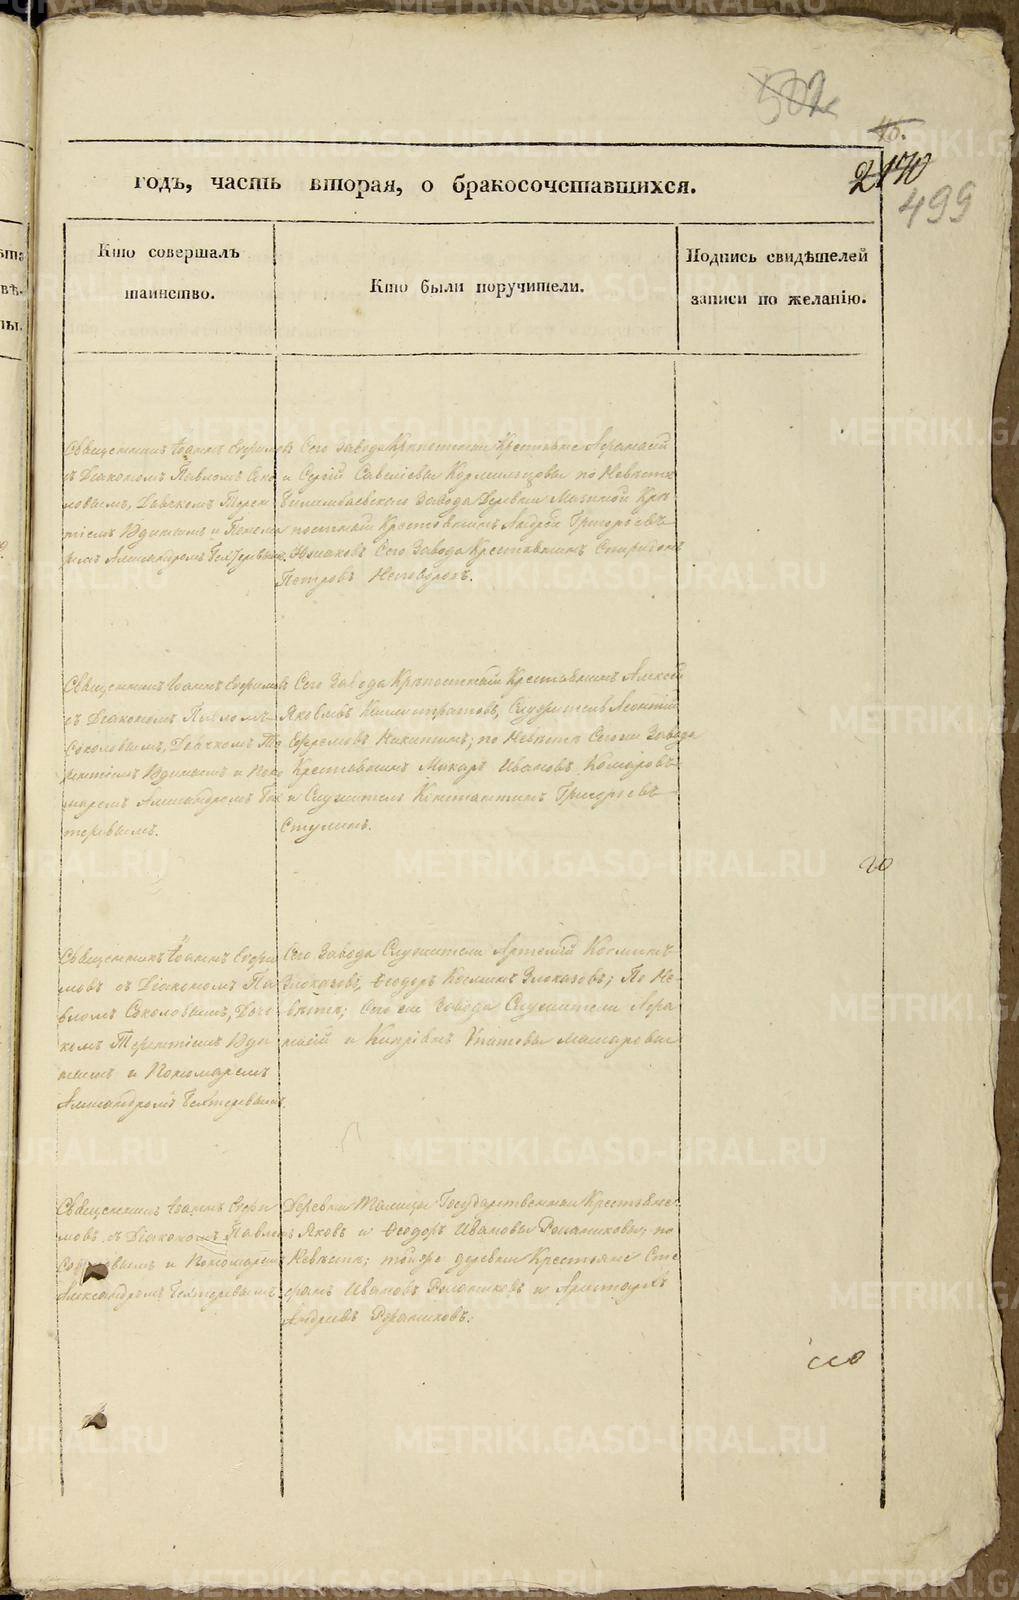 502
45.
годъ, часть вторая, о бракосочетавшихся.
2170
499
Кто совершалъ
таинство.
Кто были поручители.
Подпись свидѣтелей
записи по желанію.
Священникъ Іоаннъ Ефимовъ
съ Діакономъ Павломъ Соко
ловымъ, Дьячкомъ Терен
тіемъ Юдинымъ и Понома
ремъ Александромъ Бехтеревымъ.
Сего завода Крѣпостныи Крестьяне Афанасій
и Сергій Савеліевы Кормильцовы по Невѣстѣ
Билимбаевскаго Завода Деревни Крѣ
постный Крестьянинъ Андрей Григорьевъ
Сего Завода Крестьянинъ Спиридонъ
Петровъ
Священникъ Іоаннъ Ефимовъ
съ Діакономъ Павломъ
Соколовымъ, Дьячкомъ Те
рентіемъ Юдинымъ и Поно
маремъ Александромъ Бех
теревымъ.
Сего Завода Крѣпостный Крестьянинъ Алексѣй
Яковлевъ Служитель Леонтій
Ефремовъ Никитинъ; по Невѣстѣ Сего же Завода
Крестьянинъ Макаръ Ивановъ Комаровъ
и Служитель Константинъ Григорьевъ
Ступинъ.
20
Священникъ Іоаннъ Ефи
мовъ съ Діакономъ Па
вломъ Соколовымъ, Дьяч
комъ Терентіемъ Юди
нымъ и Пономаремъ
Александромъ Бехтеревымъ.
Сего Завода Служители Артемій Косминъ
Злоказовъ, Ѳеодоръ Косминъ Злоказовъ; По Не-
вѣстѣ; Сего же Завода Служители Афа
насій и Кипріанъ Ипатовы
Священникъ Іоаннъ Ефи
мовъ съ Діакономъ Павломъ
Соколовымъ и Пономаремъ
Александромъ Бехтеревымъ
Деревни Талицы Государственныи Крестьяне
Яковъ и Ѳеодоръ Ивановы по
Невѣстѣ; тойже деревни Крестьяне Сте
фанъ Ивановъ и Аристархъ
Андреевъ
METRIKI.GASO-URAL.RU